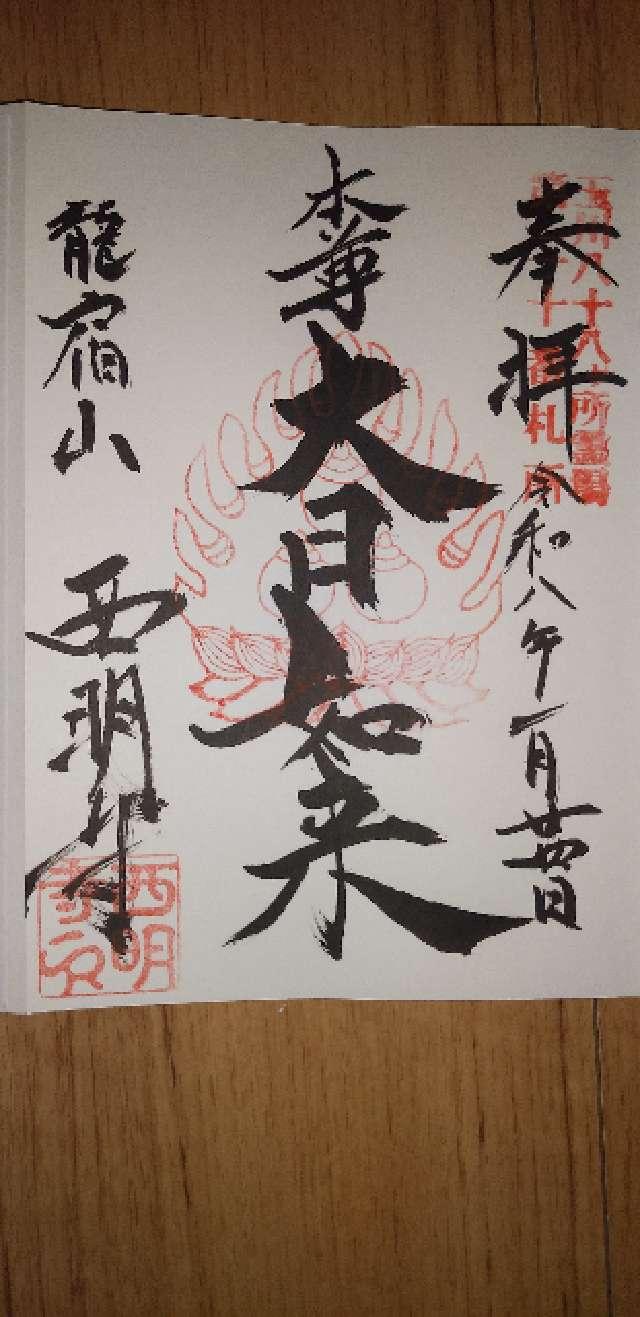 奉拝
令和八年一月廿四日
玉川八十八ヶ所霊場
十番札所
本尊
大日如来
龍宿山
西明寺
西明
寺印